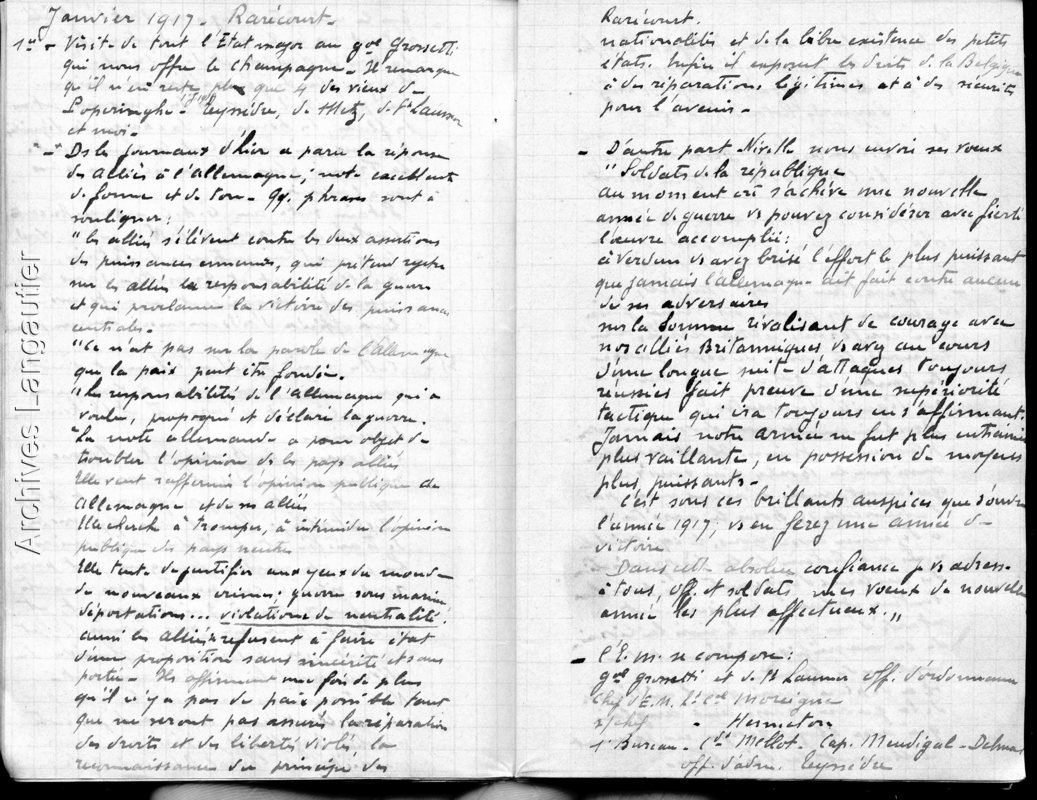 Janvier 1917 - Rarécourt -
1er - Visite de tout l'Etat major au gal Grossetti
qui nous offre le champagne - Il remarque
qu'il n'en reste plus que 4 des vieux de
Poperinghe - Teyssèdre, de Metz, de St Laumer
et moi -
- Ds les journaux d'hier a paru la réponse
des alliés à l'Allemagne; note excellente
de forme et de ton - Qq. phrases sont à
souligner:
"les alliés s'élèvent contre les deux assertions
des puissances ennemies, qui prétend rejeter
sur les alliés la responsabilité de la guerre
et qui proclame la victoire des puissances
centrales -
"Ce n'est pas sur la parole de l'Allemagne
que la paix peut être fondée.
"Les responsabilités de l'Allemagne qui a
voulu, provoqué et déclaré la guerre.
"La note allemande a pour objet de
troubler l'opinion de les pays alliés
Elle veut raffermir l'opinion publique de
Allemagne et de ses alliés
Elle cherche à tromper, à intimider l'opinion
publique des pays neutres
Elle tente de justifier aux yeux du monde
de nouveaux crimes: guerre sous marine
déportations... violations de neutralité.
aussi les alliés refusent à faire état
d'une proposition sans sincérité et sans
portée - Ils affirment une fois de plus
qu'il n'y a pas de paix possible tant
que ne seront pas assurés la réparation
des droits et des libertés violés, la
reconnaissance du principe des
Rarécourt.
nationalités et de la libre existence des petits
états. Enfin il exposent les droits de la Belgique
à des réparations légitimes et à des sécurités
pour l'avenir -
- D'autre part Nivelle nous envoie ses voeux
"Soldats de la république
au moment où s'achève une nouvelle
année de guerre vs pouvez considérer avec fierté
l'œuvre accomplie:
à Verdun vs avez brisé l'effort le plus puissant
que jamais l'Allemagne ait fait contre aucun
de ses adversaires
sur la Somme rivalisant de courage avec
nos alliés Britanniques vs avez au cours
d'une longue suite d'attaques toujours
réussies fait preuve d'une supériorité
tactique qui ira toujours en s'affirmant.
Jamais notre armée ne fut plus entraînée
plus vaillante, en possession de moyens
plus puissants -
C'est sous ces brillants auspices que s'ouvre
l'année 1917; vs en ferez une année de
victoire
Dans cette absolue confiance je vs adresse
à tous, off. et soldats mes voeux de nouvelle
année les plus affectueux."
- l'E.M. se compose:
gal grossetti et de St Laumer off. d'ordonnance
Chef d'E.M. Lt Cel Moreigne
s/chef - Herment
1 Bureau - Cdt Mellot - Cap. Mendigal - Delmas
off. d'adm. Teyssèdre
Archives Langautier